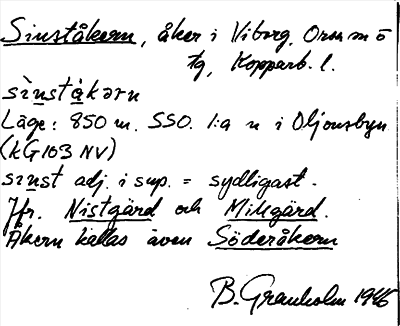 Sinståkern, åker i Viborg, Orsa m o
tg, Kopparb. l.
sìnståkərn
Läge: 850 m. SSO. l:a n i Oljonsbyn
(kG103 NV)
sinst adj. i sup. = sydligast.
Jfr. Nistgärd och Milgärd.
Åkern kallas även Söderåkern
B. Granholm 1946